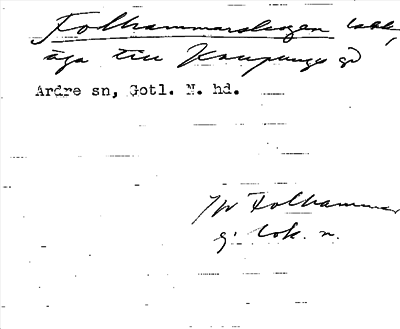 Folhammarskogen lokk,
äga till Kaupungs gd
Ardre sn, Gotl. N. hd.
Jfr Folhammar
g. lok. n.